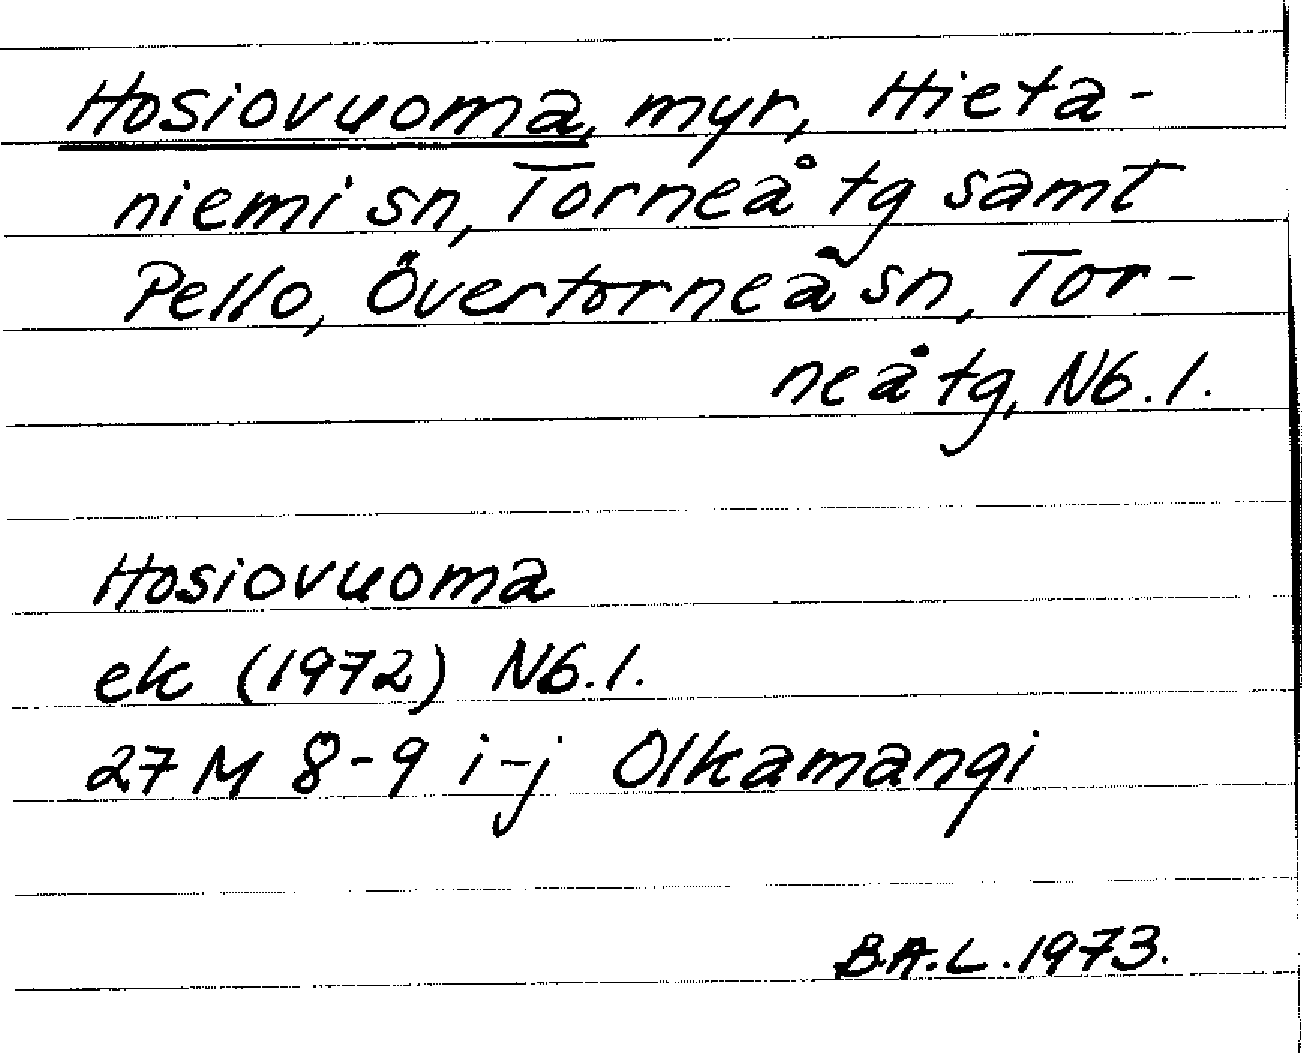 Hosiovuoma, myr, Hieta-
niemi sn, Torneå tg samt
Pello, Övertorneå sn, Tor-
neå tg, Nb. l.
Hosiovuoma
ek (1972) Nb. l.
27 M 8-9 i-j Olkamangi
B.A.L. 1973.